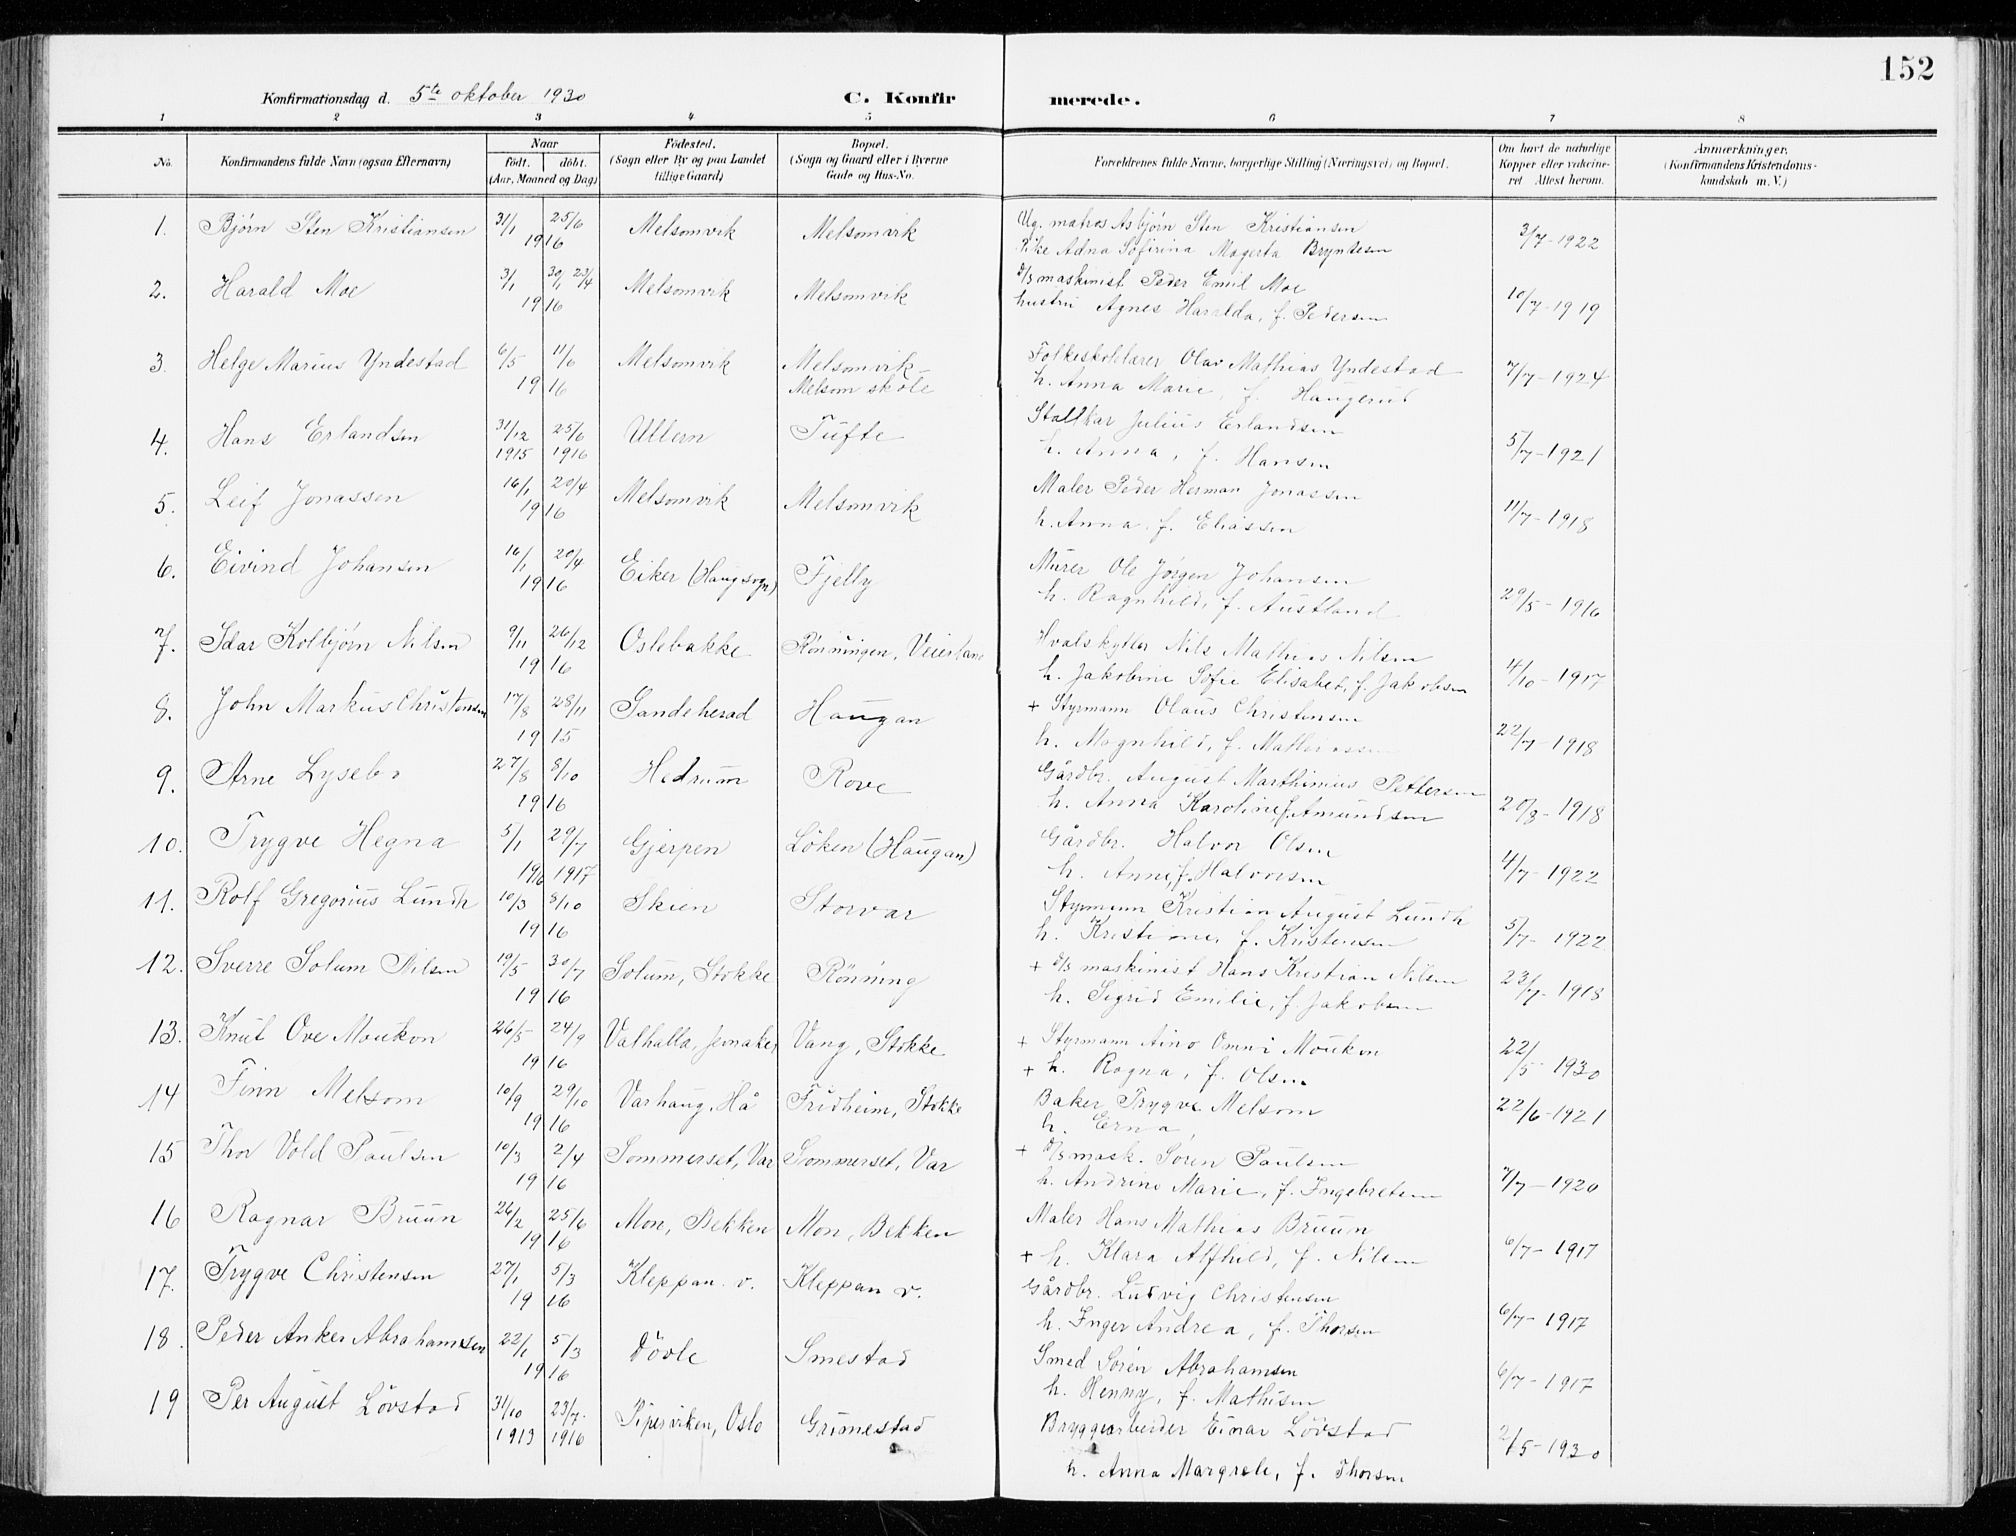 152
Konfirmationsdag d. 5te oktober 1930 C. Konfirmerede.
1 2 3 4 5 6 7 8
No. Konfirmandens fulde Navn (ogsaa Efternavn) Naar født. døbt. (Aar, Maaned og Dag) Fødested. (Sogn eller By og paa Landet tillige Gaard) Bopæl. (Sogn og Gaard eller i Byerne Gade og Hus-No. Forældrenes fulde Navne, borgerlige Stilling (Næringsvei) og Bopæl. Om havt de naturlige Kopper eller vakcineret. Attest herom. Anmærkninger, (Konfirmandens Kristendomskundskab m. V.)
1. Bjørn Sten Kristiansen 31/1 25/6 1916 Melsomvik Melsomvik Ug. matros Asbjørn Sten Kristiansen 3/7-1922
Pike Adna Sofirina Magerta Bryntesen
2. Harald Moe 3/1 30/1 23/4 1916 Melsomvik Melsomvik d/s maskinist Peder Emil Moe 10/7-1919
hustru Agnes Haralda, f. Pedersen
3. Helge Marius Yndestad 6/5 11/6 1916 Melsomvik Melsomvik- Melsom skole Folkeskolelærer Olav Mathias Yndestad 7/7-1924
h. Anna Marie, f. Haugerud
4. Hans Erlandsen 31/12 1915 25/6 1916 Ullern Tufte Stallkar Julius Erlandsen 5/7-1921
h. Anna, f. Hansen
5. Leif Jonassen 16/1 20/4 1916 Melsomvik Melsomvik Maler Peder Herman Jonassen 11/7-1918
h. Anna f. Eliassen
6. Eivind Johansen 16/1 20/4 1916 Eiker (Haug sogn) Fjelly Murer Ole Jørgen Johansen 29/5-1916
h. Ragnhild, f. Austland
7. Idar Kolbjørn Nilsen 9/11 26/12 1916 Oslebakke Rönningen, Veierland Hvalskytter Nils Mathias Nilsen 4/10-1917
h. Jakobine Sofie Elisabet, f. Jakobsen
8. John Markus Christensen 17/8 28/11 1915 Sandeherad Haugan + Styrmann Olaus Christensen 22/7-1918
h. Magnhild, f. Mathiassen
9. Arne Lysebo 27/8 8/10 1916 Hedrum Rove Gårdbr. August Marthinius Pettersen 20/8-1918
h. Anna Karoline f. Amundsen
10. Trygve Hegna 5/1 1916 29/7 1917 Gjerpen Löken (Haugan) Gårdbr. Halvor Olsen 4/7-1922
h. Anne f. Halvorsen
11. Rolf Gregorius Lundh 10/3 8/10 1916 Skien Storvar Styrmann Kristian August Lundh 5/7-1922
h. Kristiane, f. Kristensen
12. Sverre Solum Nilsen 19/5 30/7 1916 Solum, Stokke Rönning + d/s maskinist Hans Kristian Nilsen 23/7-1918
h. Sigrid Emilie, f. Jakobsen
13. Knut Ove Moukon 26/5 24/9 1916 Valhalla, Jevnaker Vang, Stokke + Styrmann Aino Omni Moukon 22/5-1930
+ h. Ragna, f. Olsen
14 Finn Melsom 10/9 29/10 1916 Varhaug, Hå Fridheim, Stokke Baker Trygve Melsom 22/6-1921
h. Erna,
15 Thor Vold Paulsen 10/3 2/4 1916 Sommerset, Var Sommerset, Var + d/s mask. Sören Paulsen 7/7-1920
h. Andrine Marie, f. Ingebretsen
16 Ragnar Bruun 26/2 25/6 1916 Mon, Bekken Mon, Bekken Maler Hans Mathias Bruun 6/7-1917
+ h. Klara Alfhild, f. Nilsen
17. Trygve Christensen 27/1 5/3 1916 Kleppan. v. Kleppan v. Gårdbr. Ludvig Christensen 6/7-1917
h. Inger Andrea, f. Thorsen
18. Peder Anker Abrahamsen 22/1 5/3 1916 Dövle Smestad Smed Sören Abrahamsen 6/7-1917
h. Henny, f. Mathisen
19 Per August Lövstad 31/10 1913 23/7 1916 Pipervíken, Oslo Grimestad Bryggearbeider Einar Lövstad 2/5-1930
h. Anna Margrete, f. Thorsen